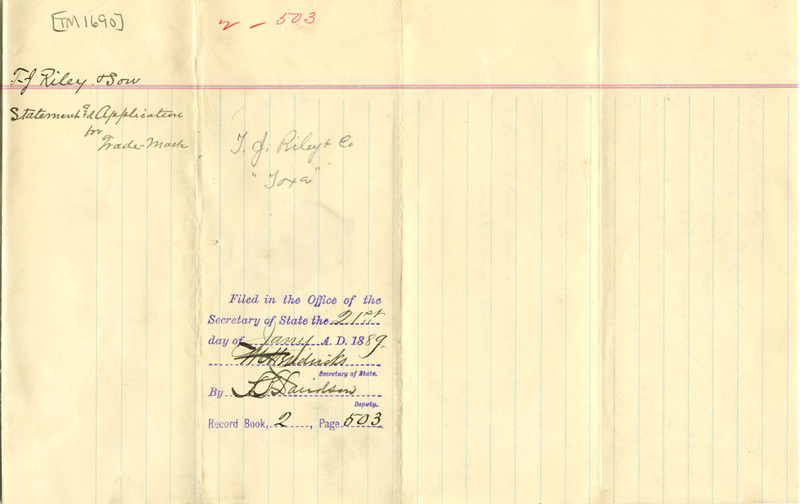 [TM1690]
2 - 503
T-J Riley & Son
Statement and Application
for
Trade-Mark
T. J. Riley & Co
"Toxa"
Filed in the Office of the
Secretary of State the 21st
day of Jany A. D. 1889.
W Hendricks
Secretary of State.
By Davidson
Deputy.
Record Book, 2, Page 503